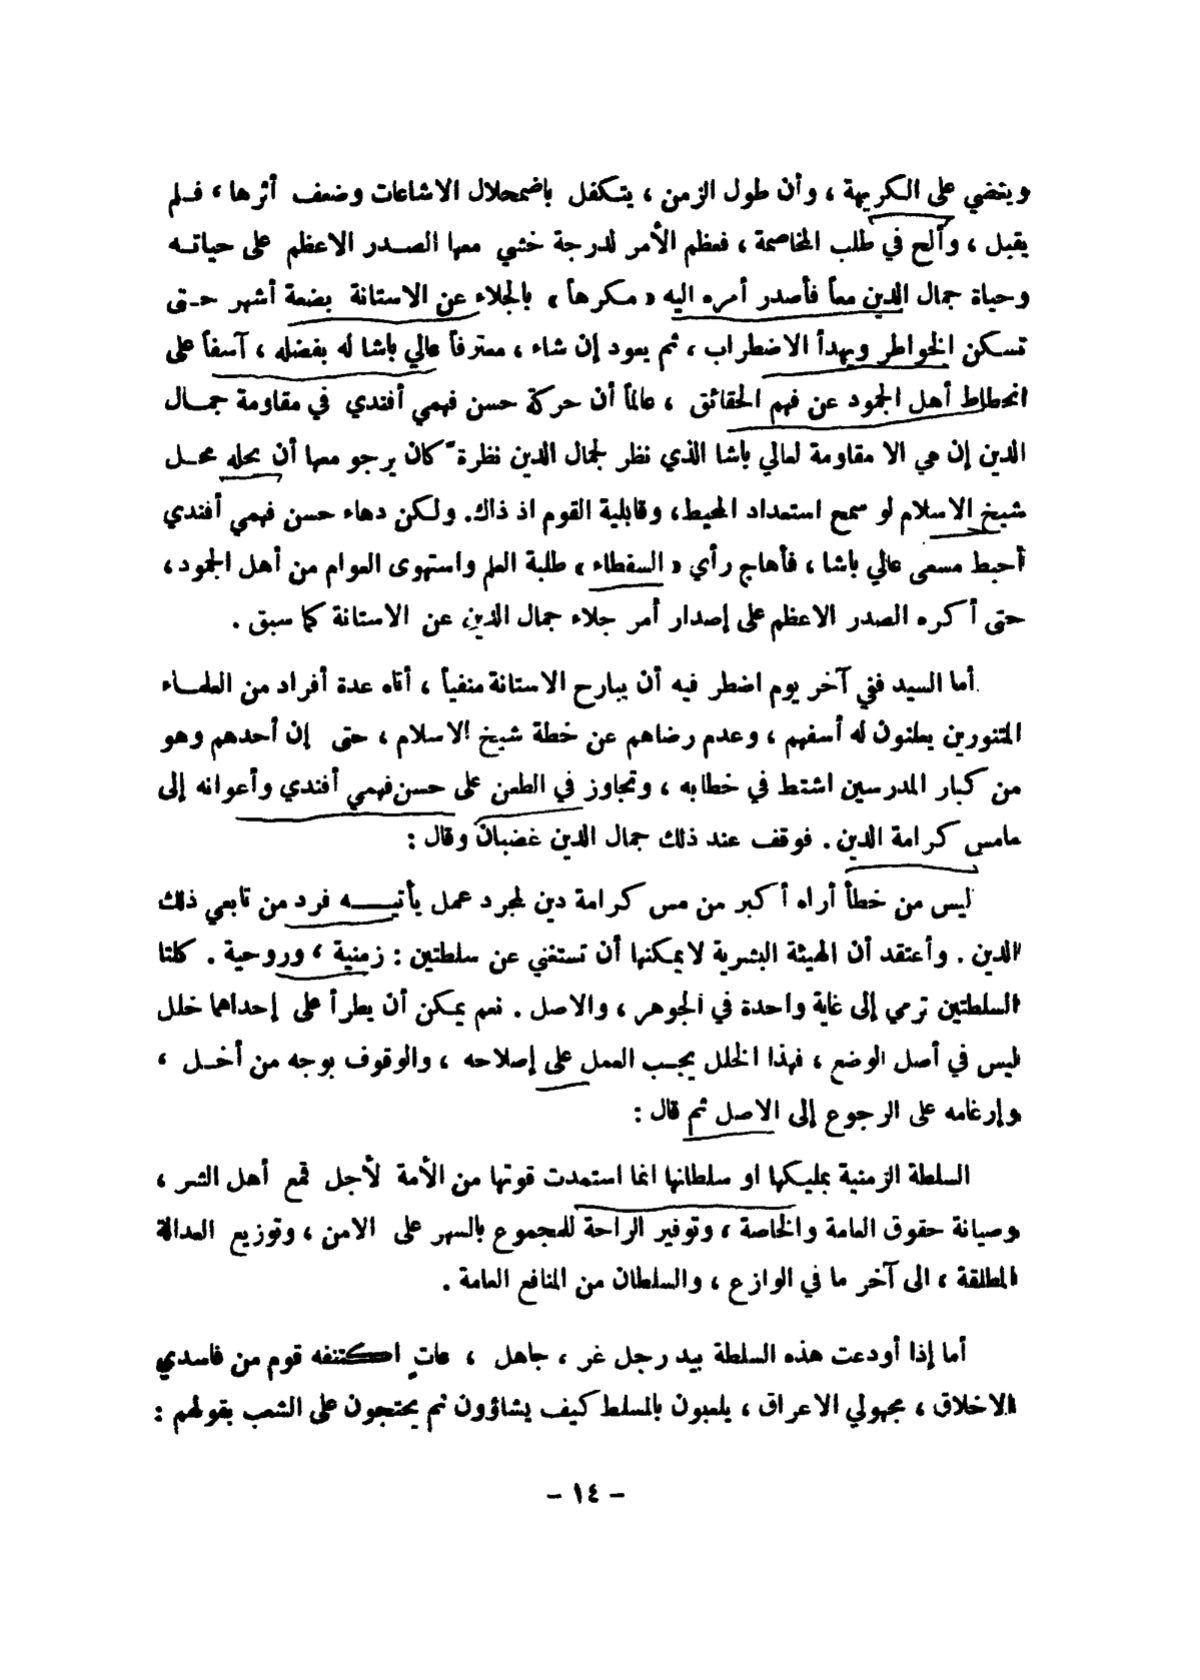 ويغضي على الكريهة ، وأن طول الزمن ، يتكفل باضمحلال الاشاعات وضعف أثرها ، فلم
يقبل ، وألح في طلب المخاصمة ، فعظم الأمر لدرجة خشي معها الصدر الاعظم على حياته
وحياة جمال الدين معاً فأصدر أمره اليه « مكرهاً » بالجلاء عن الاستانة بضعة أشهر حتى
تسكن الخواطر ويهدأ الاضطراب ، ثم يعود إن شاء ، معترفاً عالي باشا له بفضله ، آسفاً على
انحطاط أهل الجمود عن فهم الحقائق ، عالماً أن حركة حسن فهمي أفندي في مقاومة جمال
الدين إن هي الا مقاومة لعالي باشا الذي نظر لجمال الدين نظرة ً كان يرجو معها أن يحله محل
شيخ الاسلام لو سمح استعداد المحيط، وقابلية القوم اذ ذاك. ولكن دهاء حسن فهمي أفندي
أحبط مسعى عالي باشا ، فأهاج رأي « السفطاء » طلبة العلم واستهوى العوام من أهل الجمود ،
حتى أكره الصدر الاعظم على إصدار أمر جلاء جمال الدين عن الاستانة كما سبق .
أما السيد ففي آخر يوم اضطر فيه أن يبارح الاستانة منفياً ، أتاه عدة أفراد من العلماء
المتنورين يعلنون له أسفهم ، وعدم رضاهم عن خطة شيخ الاسلام ، حتى إن أحدهم وهو
من كبار المدرسين اشتط في خطابه ، وتجاوز في الطعن على حسن فهمي أفندي وأعوانه إلى
مامس كرامة الدين . فوقف عند ذلك جمال الدين غضبان وقال :
ليس من خطأ أراه أكبر من مس كرامة دين لمجرد عمل يأتيه فرد من تابعي ذلك
الدين . وأعتقد أن الهيئة البشرية لايمكنها أن تستغني عن سلطتين : زمنية ، وروحية . كلتا
السلطتين ترمي إلى غاية واحدة في الجوهر ، والاصل . نعم يمكن أن يطرأ على إحداهما خلل
ليس في أصل الوضع ، فهذا الخلل يجب العمل على إصلاحه ، والوقوف بوجه من أخل ،
وإرغامه على الرجوع إلى الاصل ثم قال :
السلطة الزمنية بمليكها او سلطانها انما استمدت قوتها من الأمة لأجل قمع أهل الشر ،
وصيانة حقوق العامة والخاصة ، وتوفير الراحة للمجموع بالسهر على الامن ، وتوزيع العدالة
المطلقة ، الى آخر ما في الوازع ، والسلطان من المنافع العامة .
أما إذا أودعت هذه السلطة بيد رجل غر ، جاهل ، عاتٍ اكتنفه قوم من فاسدي
الاخلاق ، مجهولي الاعراق ، يلعبون بالمسلط كيف يشاؤون ثم يحتجون على الشعب بقولهم :
– ١٤ –